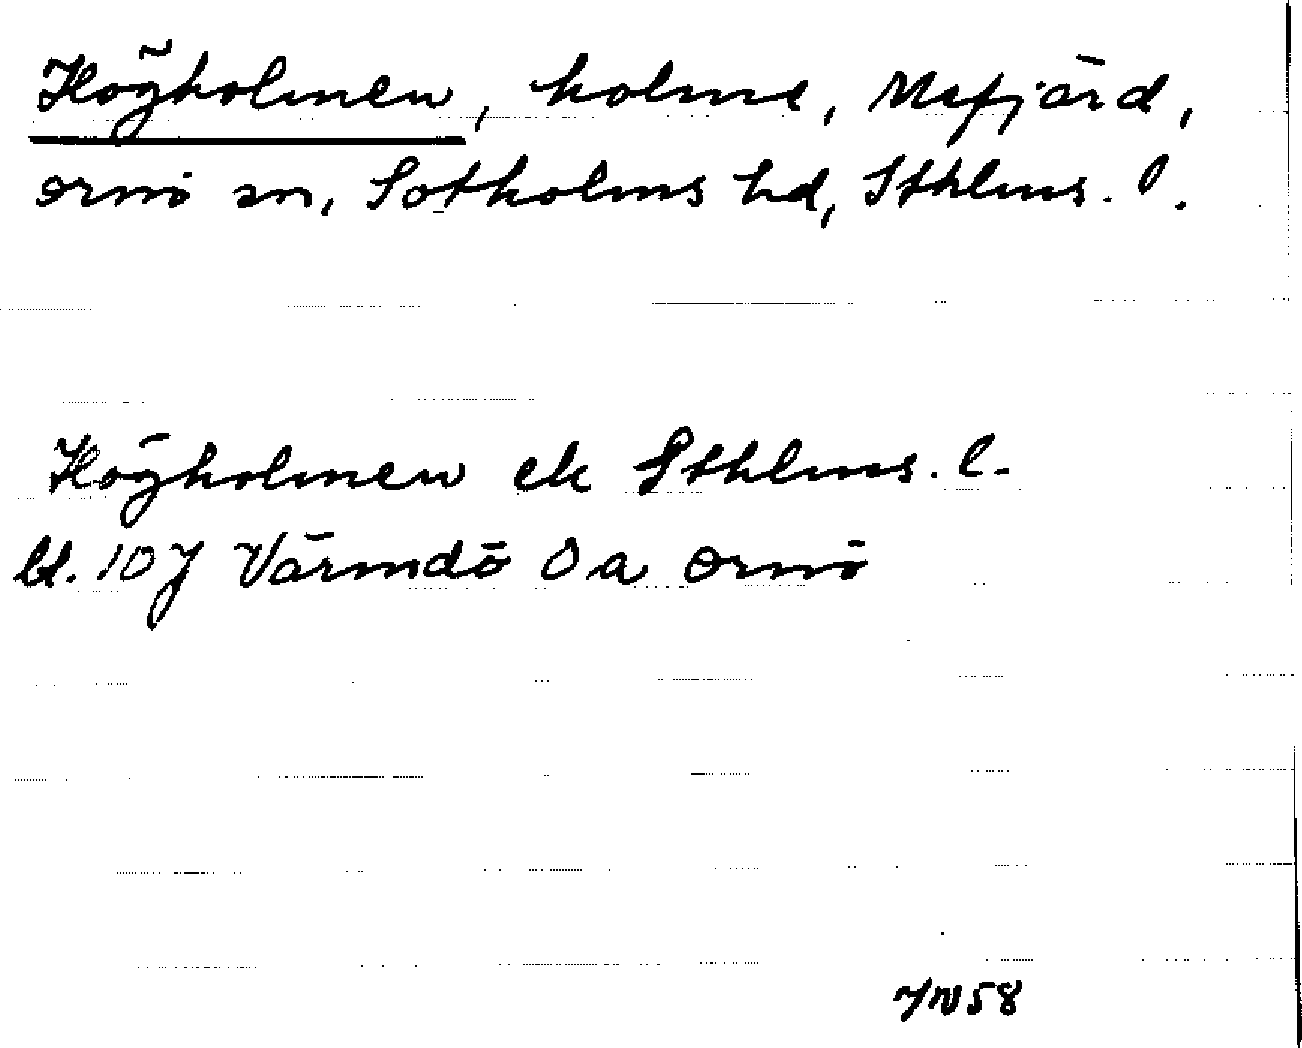 Högholmen, holme, Mefjärd,
Ornö sn, Sotholms hd, Sthlms. l.
Högholmen ek Sthlms. l.
bl. 107 Värmdö Oa Ornö
58